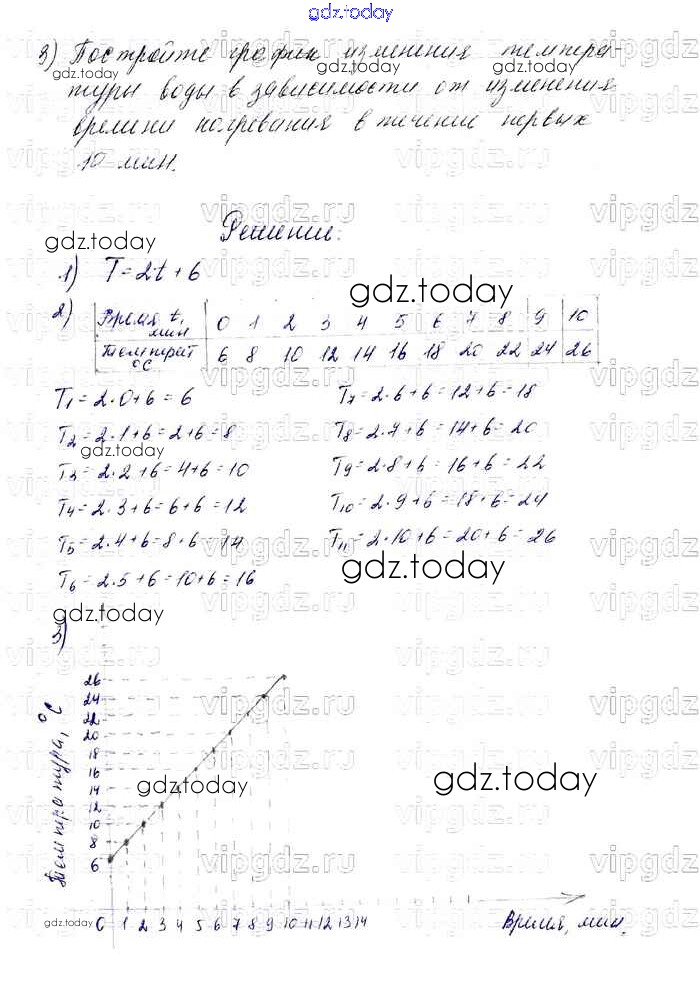 gdz.today
3) Постройте график изменения темпера-
gdz.today gdz.today
туры воды в зависимости от изменения
времени нагревания в течение первых
10 мин.
vipgdz.ru vipgdz.ru vipgdz
Решение:
gdz.today
1) T=2t+6
gdz.today
2) Время t, мин 0 1 2 3 4 5 6 7 8 9 10
Температ °C 6 8 10 12 14 16 18 20 22 24 26
T1=2·0+6=6 T7=2·6+6=12+6=18
T2=2·1+6=2+6=8 T8=2·7+6=14+6=20
gdz.today
T3=2·2+6=4+6=10 T9=2·8+6=16+6=22
T4=2·3+6=6+6=12 T10=2·9+6=18+6=24
T5=2·4+6=8+6=14 T11=2·10+6=20+6=26
T6=2·5+6=10+6=16
gdz.today
gdz.today
3)
Температура, °C
26
24
22
20
18
16
14
12
10
8
6
gdz.today gdz.today
gdz.today
0 1 2 3 4 5 6 7 8 9 10 11 12 13 14
Время, мин.